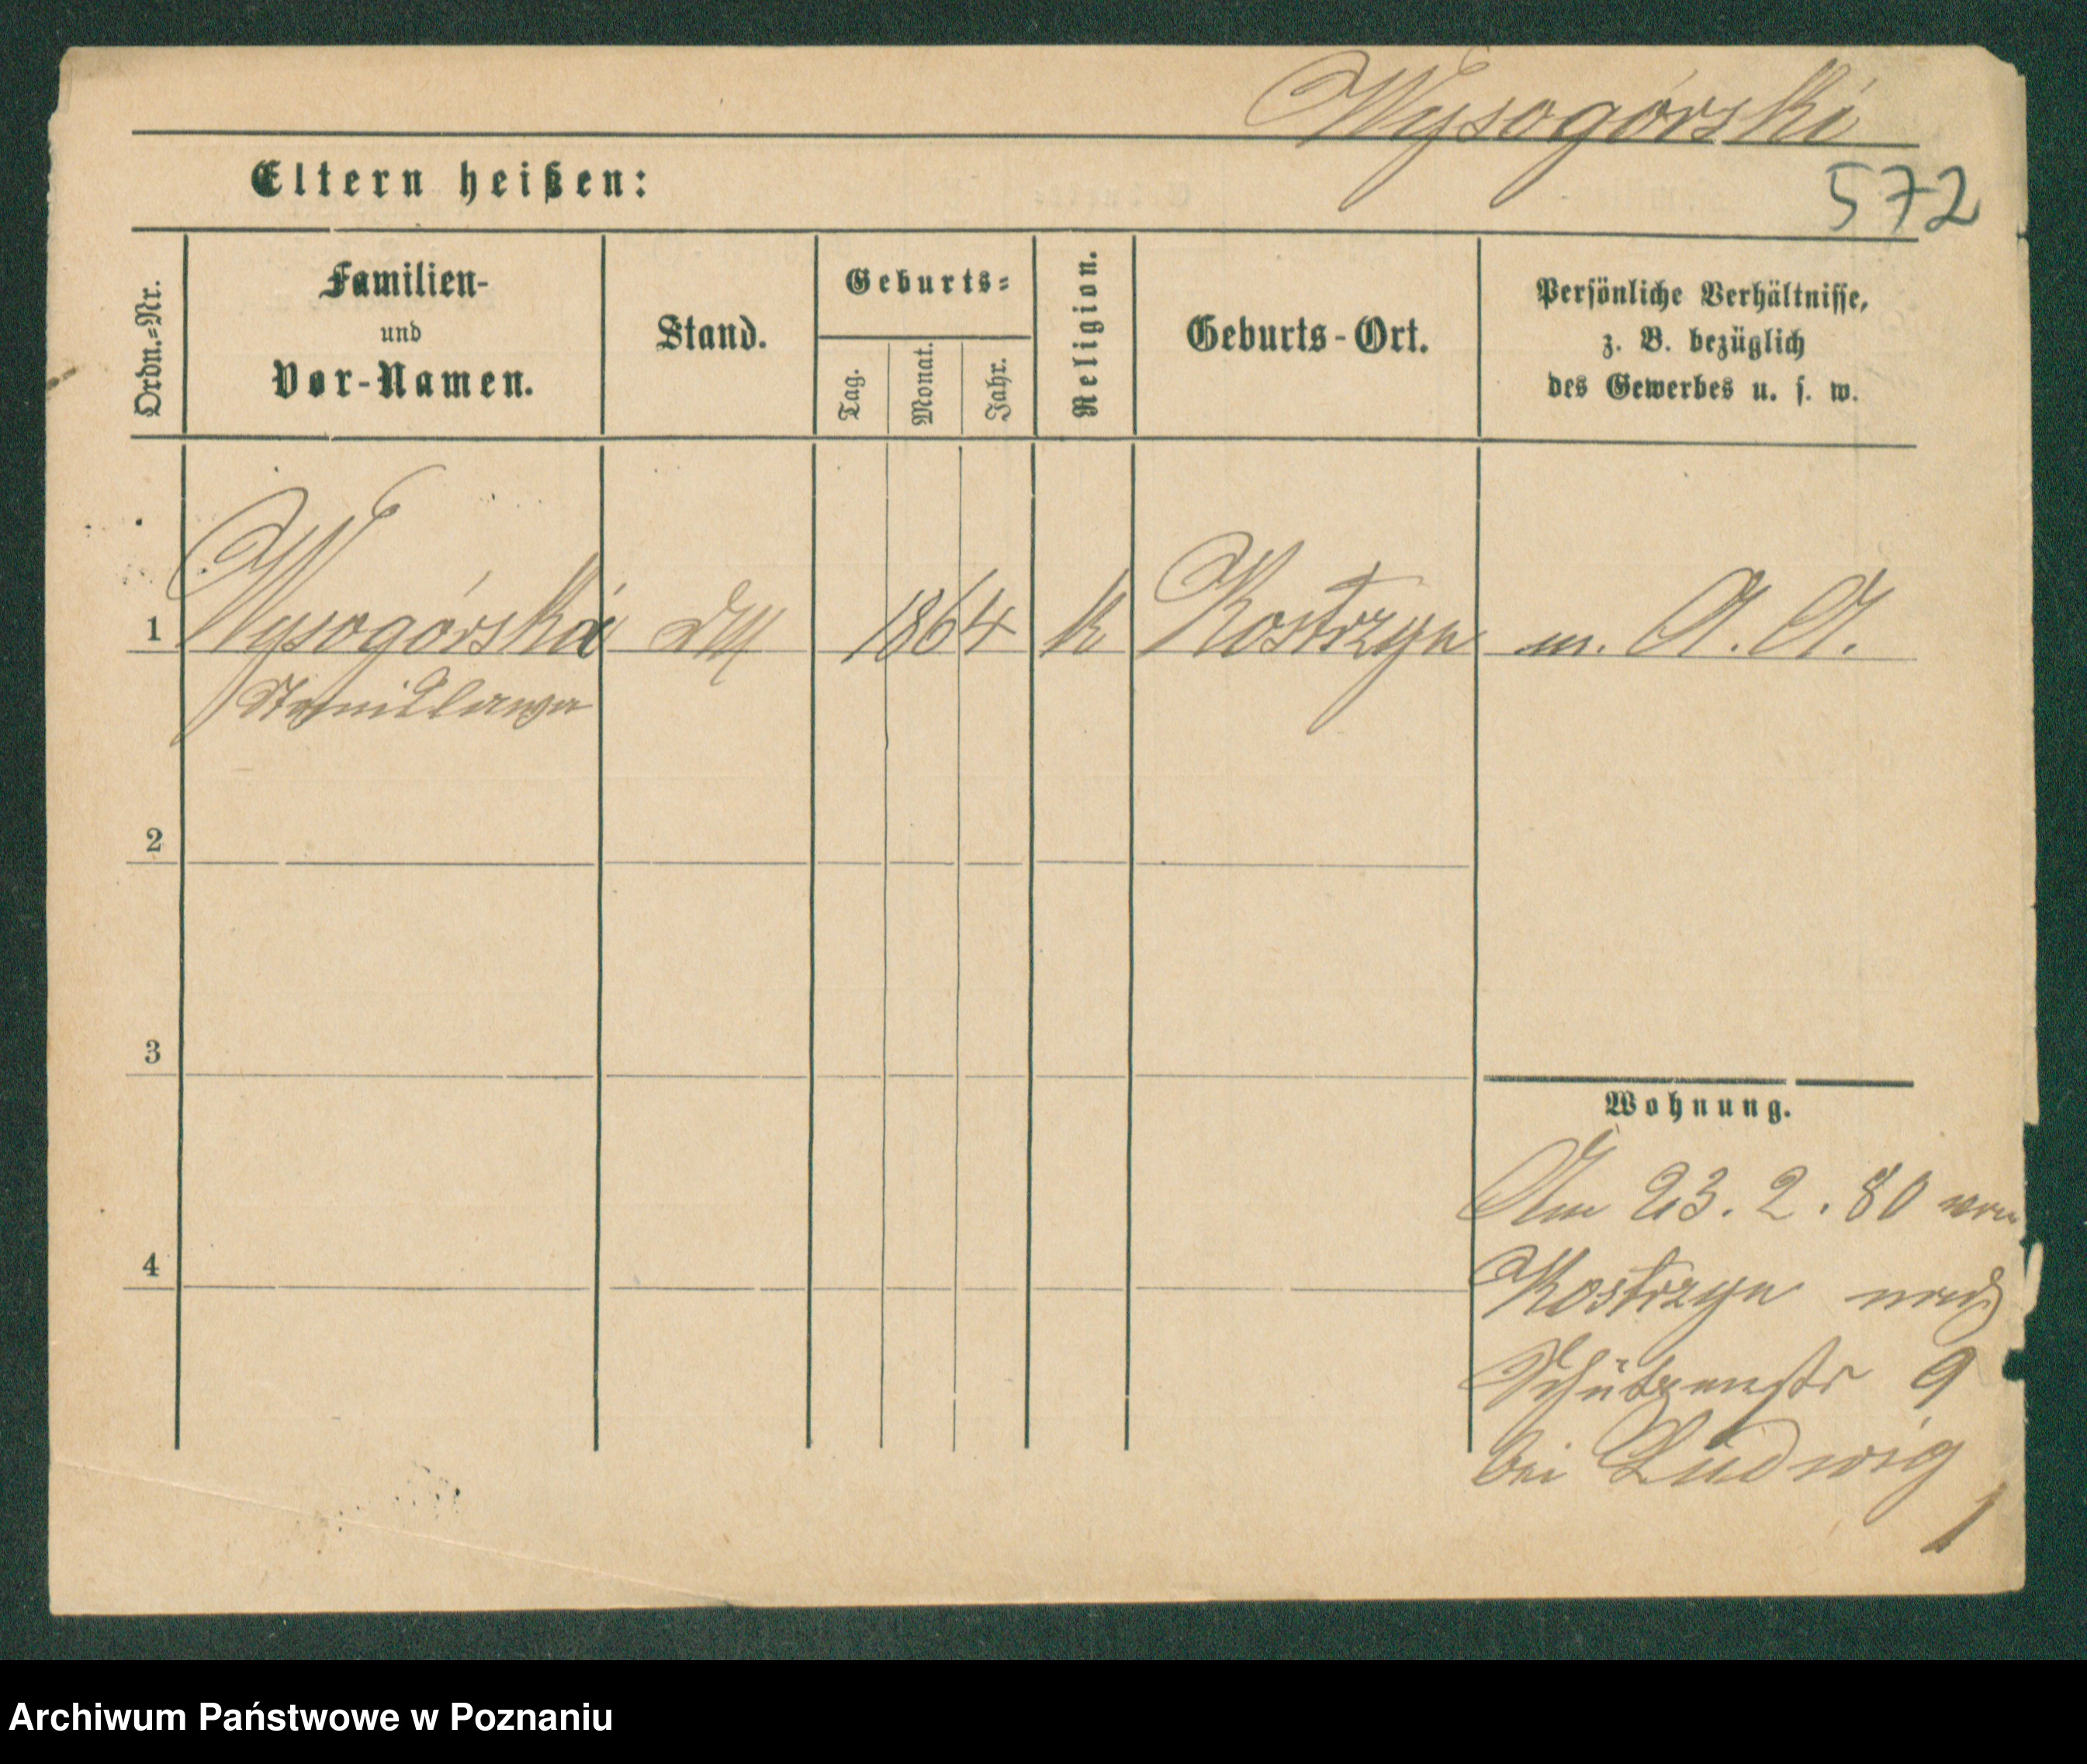 Wysogórski
572
Eltern heißen:
Ordn.=Nr.
Familien-
und
Vor-Namen.
Stand.
Geburts=
Tag.
Monat.
Jahr.
Religion.
Geburts-Ort.
Persönliche Verhältnisse,
z. B. bezüglich
des Gewerbes u. s. w.
1 Wysogórska 1864 k Kostrzyn m. A. A.
Stanislawa
2
3
4
Wohnung.
Am 23. 2. 80 von
Kostrzyn nach
Schützenstr 9
bei Ludwig
Archiwum Państwowe w Poznaniu